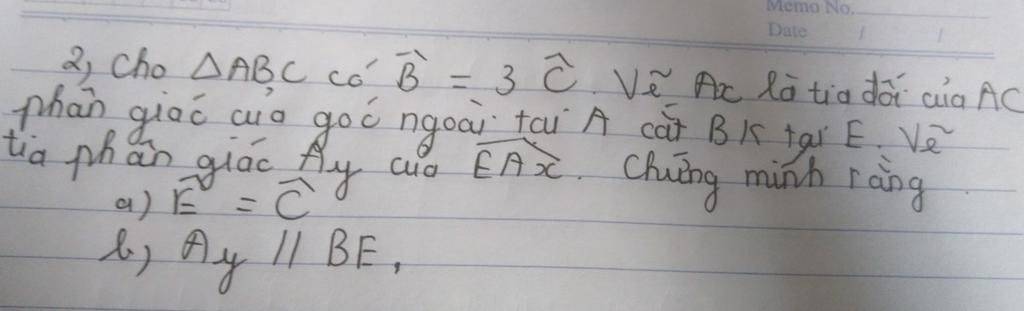 Memo No.
Date / /
2, Cho △ABC có B̂ = 3 Ĉ. Vẽ Ax là tia đối của AC
phân giác của góc ngoài tại A cắt BK tại E. Vẽ
tia phân giác Ay của EAx. Chứng minh rằng
a) Ê = Ĉ
b, Ay // BE,